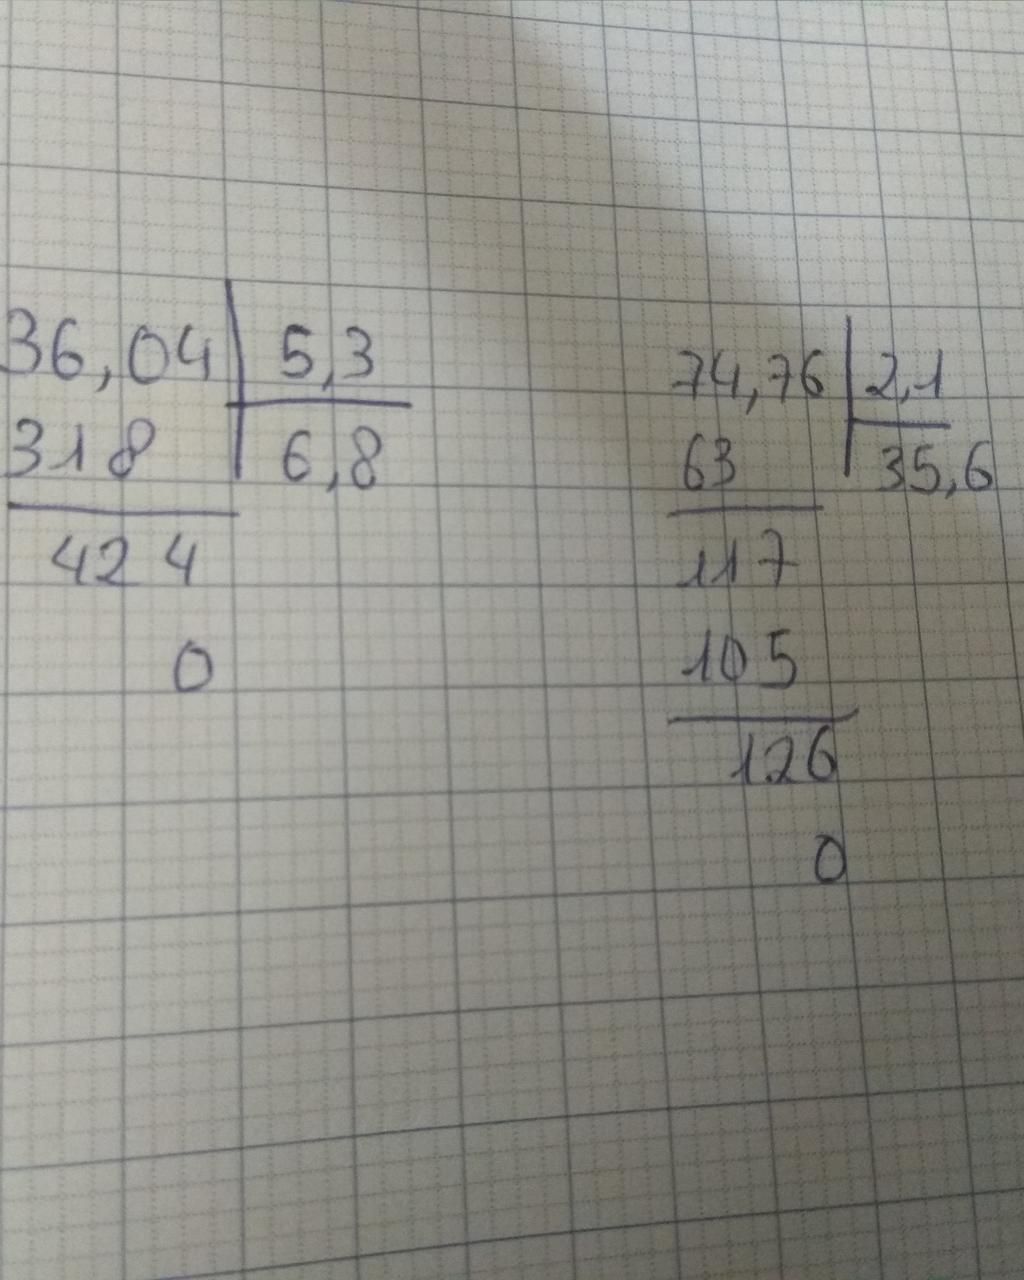 36,04 5,3
318 6,8
424
0
74,76 2,1
63 35,6
117
105
126
0